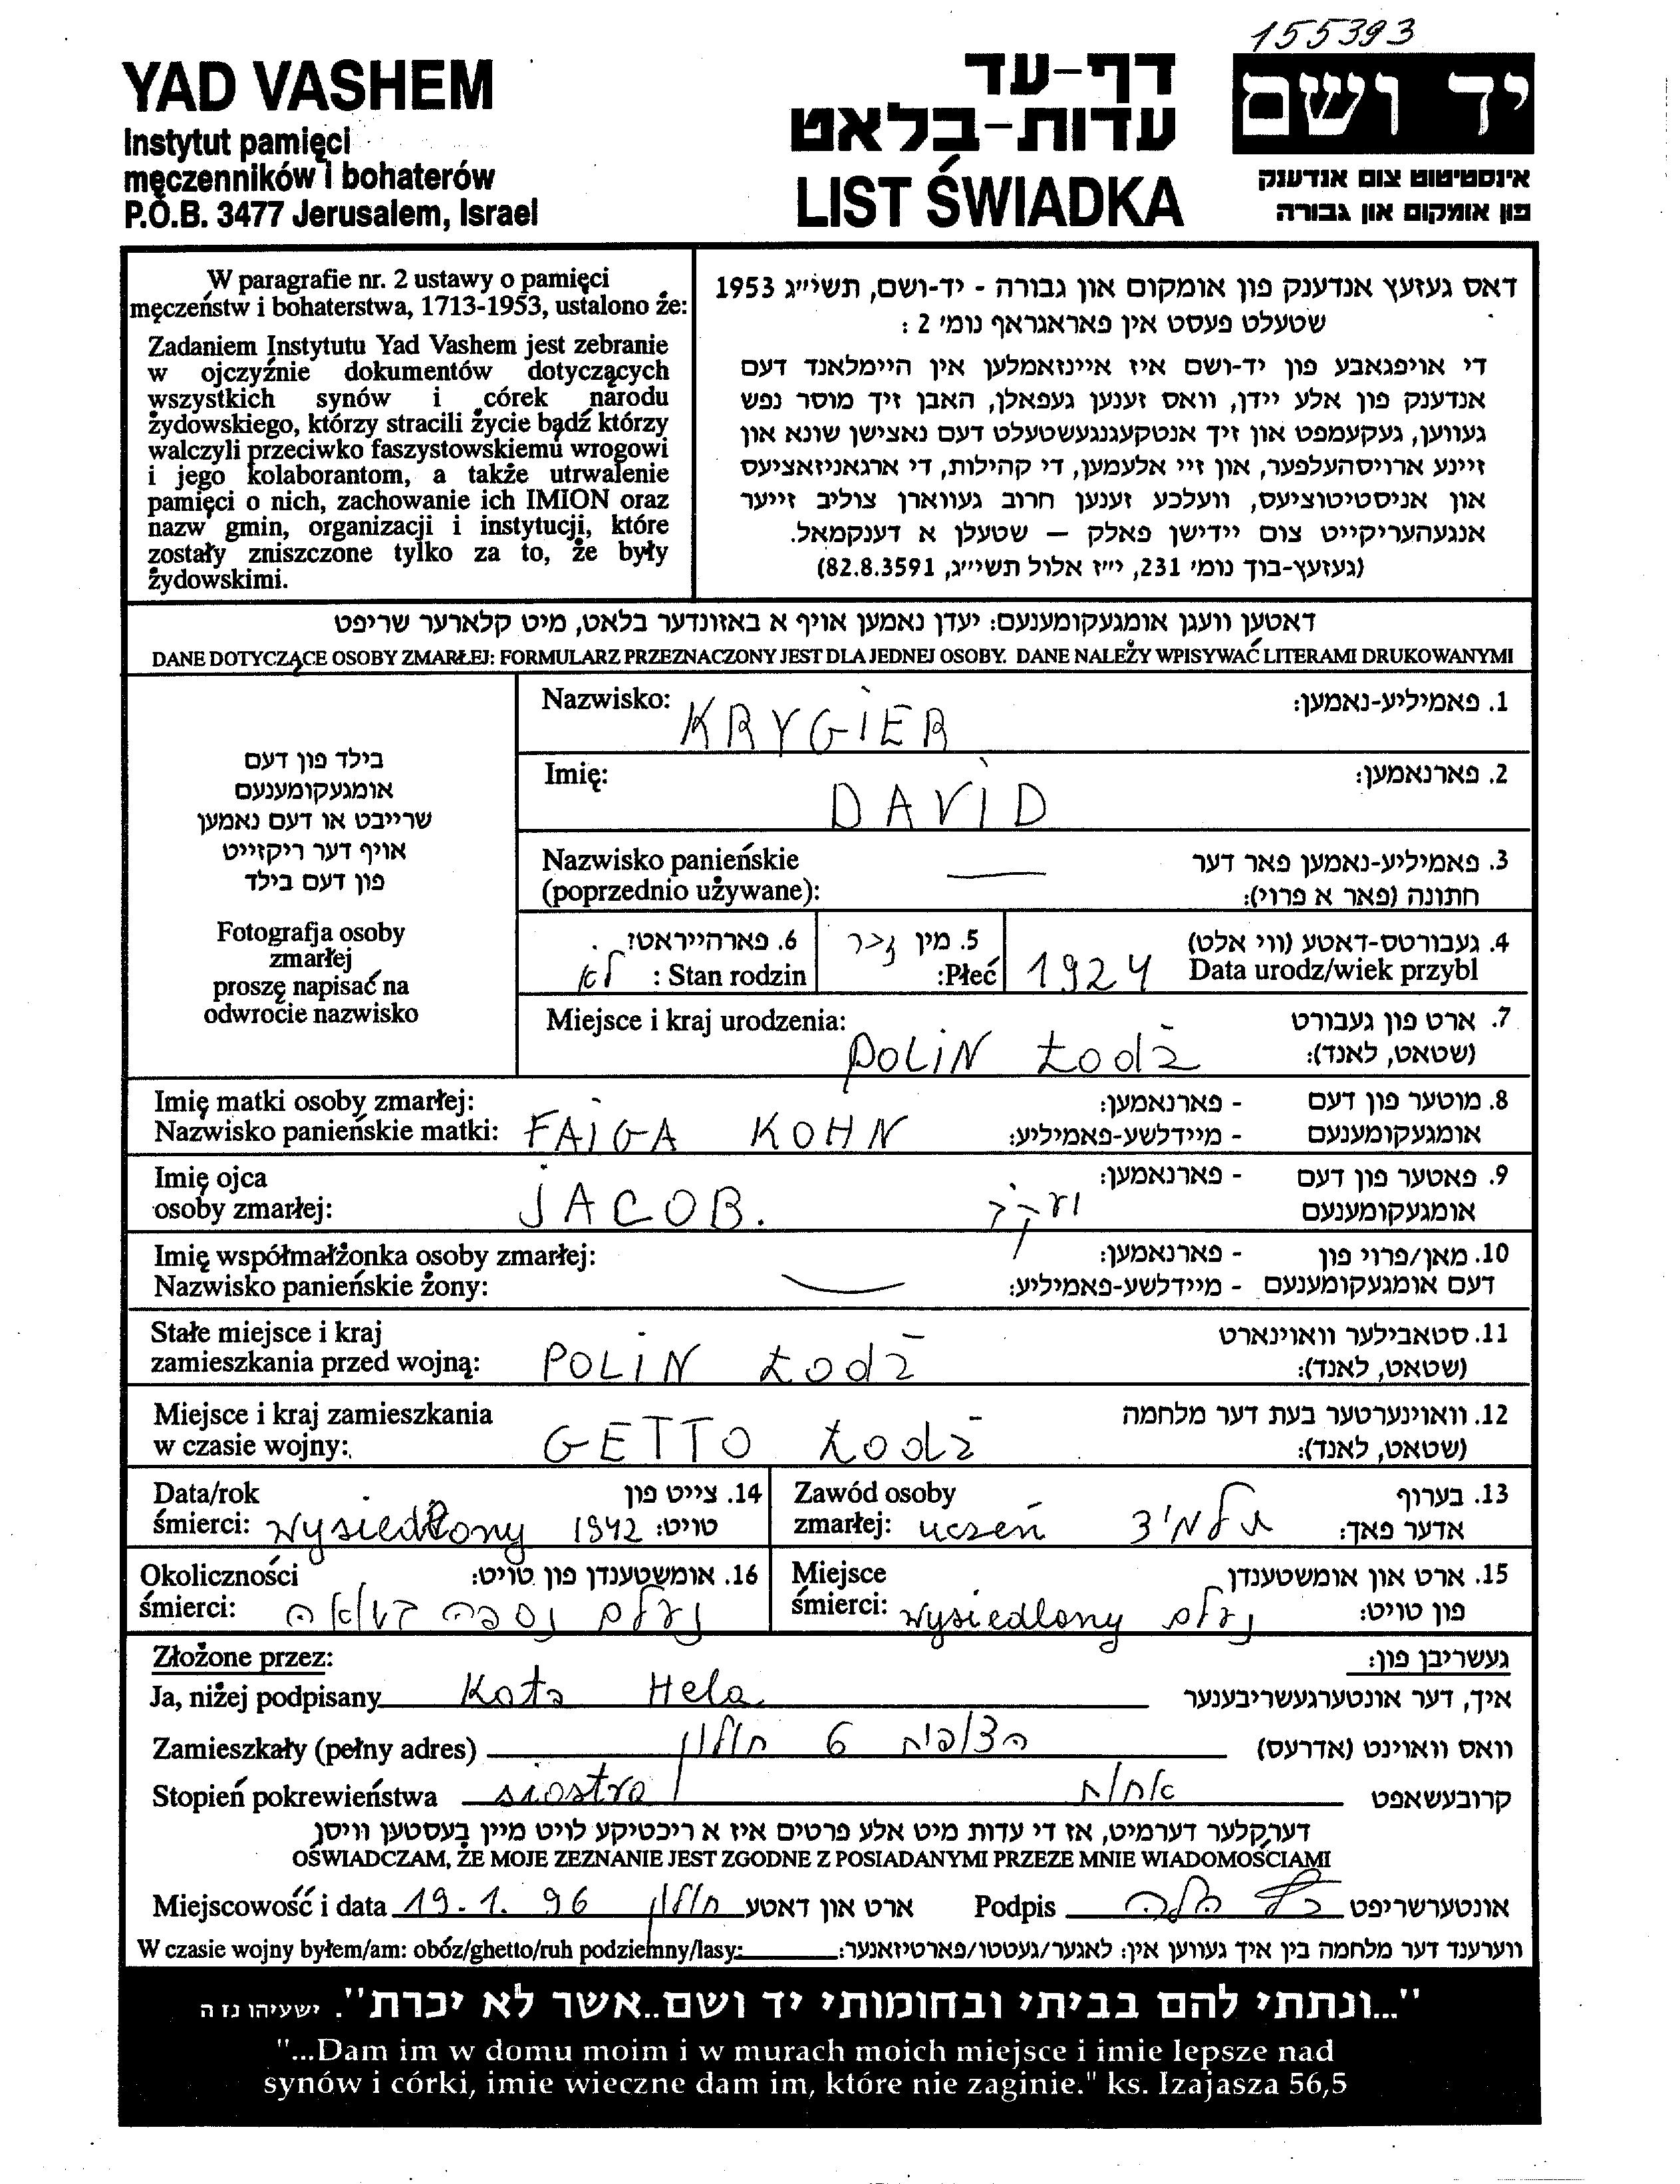 155393
YAD VASHEM
Instytut pamięci
męczenników i bohaterów
P.O.B. 3477 Jerusalem, Israel
דף-עד
עדות-בלאט
LIST ŚWIADKA
יד ושם
אינסטיטוט צום אנדענק
פון אומקום און גבורה
W paragrafie nr. 2 ustawy o pamięci
męczeństw i bohaterstwa, 1713-1953, ustalono że:
Zadaniem Instytutu Yad Vashem jest zebranie
w ojczyźnie dokumentów dotyczących
wszystkich synów i córek narodu
żydowskiego, którzy stracili życie bądź którzy
walczyli przeciwko faszystowskiemu wrogowi
i jego kolaborantom, a także utrwalenie
pamięci o nich, zachowanie ich IMION oraz
nazw gmin, organizacji i instytucji, które
zostały zniszczone tylko za to, że były
żydowskimi.
דאס געזעץ אנדענק פון אומקום און גבורה - יד-ושם, תשי״ג 1953
שטעלט פעסט אין פאראגראף נומ׳ 2 :
די אויפגאבע פון יד-ושם איז איינזאמלען אין היימלאנד דעם
אנדענק פון אלע יידן, וואס זענען געפאלן, האבן זיך מוסר נפש
געווען, געקעמפט און זיך אנטקעגנגעשטעלט דעם נאצישן שונא און
זיינע ארויסהעלפער, און זיי אלעמען, די קהילות, די ארגאניזאציעס
און אניסטיטוציעס, וועלכע זענען חרוב געווארן צוליב זייער
אנגעהעריקייט צום יידישן פאלק — שטעלן א דענקמאל.
(געזעץ-בוך נומ׳ 231, י״ז אלול תשי״ג, 82.8.3591)
דאטען וועגן אומגעקומענעם: יעדן נאמען אויף א באזונדער בלאט, מיט קלארער שריפט
DANE DOTYCZĄCE OSOBY ZMARŁEJ: FORMULARZ PRZEZNACZONY JEST DLA JEDNEJ OSOBY. DANE NALEŻY WPISYWAĆ LITERAMI DRUKOWANYMI
בילד פון דעם
אומגעקומענעם
שרייבט או דעם נאמען
אויף דער ריקזייט
פון דעם בילד
Fotografja osoby
zmarłej
proszę napisać na
odwrocie nazwisko
Nazwisko: KRYGIER 1. פאמיליע-נאמען:
Imię: DAVID 2. פארנאמען:
Nazwisko panieńskie — 3. פאמיליע-נאמען פאר דער
(poprzednio używane): חתונה (פאר א פרוי):
4. געבורטס-דאטע (ווי אלט) 5. מין זכר 6. פארהייראט?
Data urodz/wiek przybl 1924 Płeć: Stan rodzin : לא
Miejsce i kraj urodzenia: 7. ארט פון געבורט
POLIN Łodź (שטאט, לאנד):
Imię matki osoby zmarłej: 8. מוטער פון דעם - פארנאמען:
Nazwisko panieńskie matki: FAIGA KOHN אומגעקומענעם - מיידלשע-פאמיליע:
Imię ojca 9. פאטער פון דעם - פארנאמען:
osoby zmarłej: JACOB. אומגעקומענעם
Imię współmałżonka osoby zmarłej: 10. מאן/פרוי פון - פארנאמען:
Nazwisko panieńskie żony: — דעם אומגעקומענעם - מיידלשע-פאמיליע:
Stałe miejsce i kraj 11. סטאבילער וואוינארט
zamieszkania przed wojną: POLIN Łodź (שטאט, לאנד):
Miejsce i kraj zamieszkania 12. וואוינערטער בעת דער מלחמה
w czasie wojny: GETTO Łodź (שטאט, לאנד):
Data/rok 14. צייט פון
śmierci: Wysiedlony 1942 טויט:
Zawód osoby 13. בערוף
zmarłej: uczeń תלמיד אדער פאך:
Okoliczności 16. אומשטענדן פון טויט:
śmierci: נעלם נספה בשואה
Miejsce 15. ארט און אומשטענדן
śmierci: Wysiedlony נעלם פון טויט:
Złożone przez: געשריבן פון:
Ja, niżej podpisany Katz Hela איך, דער אונטערגעשריבענער
Zamieszkały (pełny adres) הצופית 6 חולון וואס וואוינט (אדרעס)
Stopień pokrewieństwa siostra אחות קרובעשאפט
דערקלער דערמיט, אז די עדות מיט אלע פרטים איז א ריכטיקע לויט מיין בעסטען וויסן
OŚWIADCZAM, ŻE MOJE ZEZNANIE JEST ZGODNE Z POSIADANYMI PRZEZE MNIE WIADOMOŚCIAMI
Miejscowość i data 19.1.96 חולון ארט און דאטע Podpis כץ הלה אונטערשריפט
W czasie wojny byłem/am: obóz/ghetto/ruh podziemny/lasy: ווערענד דער מלחמה בין איך געווען אין: לאגער/געטטו/פארטיזאנער:
"...ונתתי להם בביתי ובחומותי יד ושם..אשר לא יכרת". ישעיהו נז ה
"...Dam im w domu moim i w murach moich miejsce i imie lepsze nad
synów i córki, imie wieczne dam im, które nie zaginie." ks. Izajasza 56,5